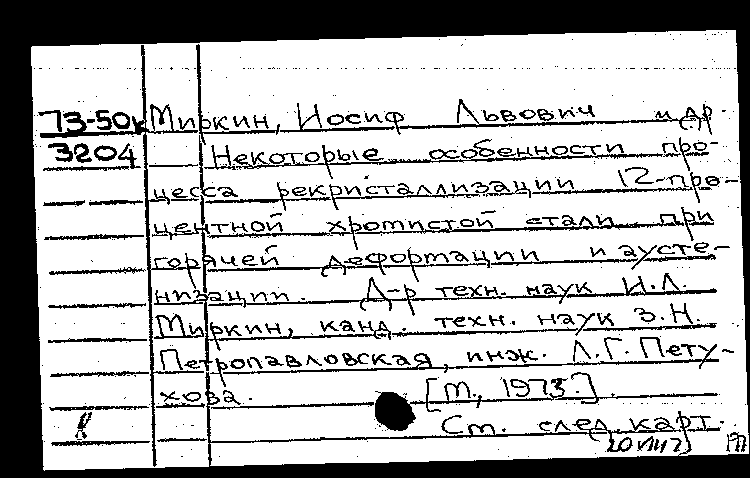 73-50к Миркин, Иосиф Львович и др.
3204 Некоторые особенности про-
цесса рекристаллизации 12-про-
центной хромистой стали при
горячей деформации и аусте-
низации. Д-р техн. наук И.Л.
Миркин, канд. техн. наук З.Н.
Петропавловская, инж. Л.Г. Пету-
хова. [М., 1973.].
См. след. карт.